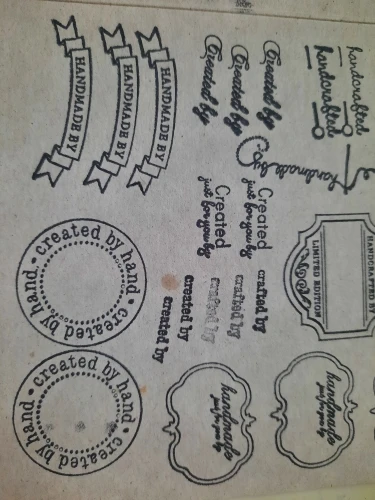 handcrafted
handcrafted
handmade by
HANDCRAFTED BY
LIMITED EDITION
Created by
Created by
Created by
Created
just for you by
Created
just for you by
crafted by
crafted by
crafted by
created by
created by
handmade
just for you by
handmade
just for you by
HANDMADE BY
HANDMADE BY
HANDMADE BY
created by hand • created by hand •
created by hand • created by hand •